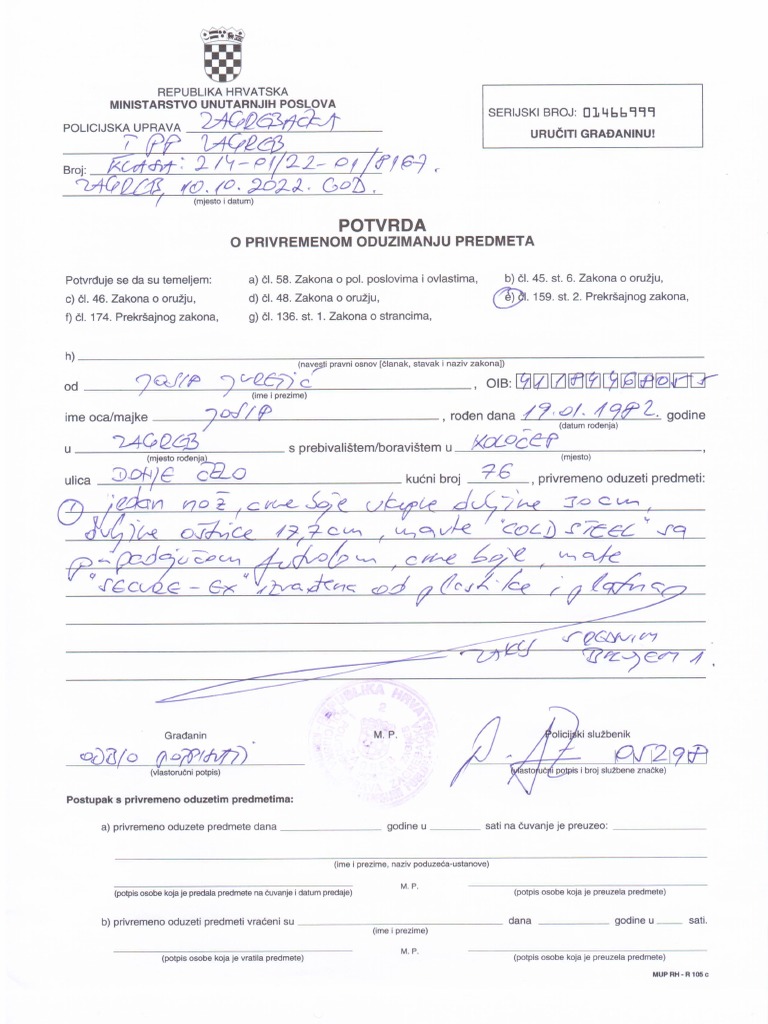 REPUBLIKA HRVATSKA
MINISTARSTVO UNUTARNJIH POSLOVA
POLICIJSKA UPRAVA ZAGREBAČKA
I PP ZAGREB
Broj: KLASA: 214-01/22-01/8167.
ZAGREB, 10.10.2022. GOD.
(mjesto i datum)
SERIJSKI BROJ: 01466999
URUČITI GRAĐANINU!
POTVRDA
O PRIVREMENOM ODUZIMANJU PREDMETA
Potvrđuje se da su temeljem: a) čl. 58. Zakona o pol. poslovima i ovlastima, b) čl. 45. st. 6. Zakona o oružju,
c) čl. 46. Zakona o oružju, d) čl. 48. Zakona o oružju, e) čl. 159. st. 2. Prekršajnog zakona,
f) čl. 174. Prekršajnog zakona, g) čl. 136. st. 1. Zakona o strancima,
h)
(navesti pravni osnov [članak, stavak i naziv zakona])
od JOSIP JURETIĆ , OIB:
(ime i prezime)
ime oca/majke JOSIP , rođen dana 19.01.1982. godine
(datum rođenja)
u ZAGREB s prebivalištem/boravištem u KOLOČEP ,
(mjesto rođenja) (mjesto)
ulica DONJE ČELO kućni broj 76 , privremeno oduzeti predmeti:
1 jedan nož, crne boje ukupne duljine 30cm,
duljine oštrice 17,7cm, marke "COLD STEEL" sa
pripadajućom futrolom, crne boje, marke
"SECURE-EX" izrađena od plastike i platna
ZAKLJ. S REDNIM
BROJEM 1.
REPUBLIKA HRVATSKA
2
Građanin M. P. Policijski službenik
ODBIO POTPISATI
(vlastoručni potpis) (vlastoručni potpis i broj službene značke)
Postupak s privremeno oduzetim predmetima:
a) privremeno oduzete predmete dana godine u sati na čuvanje je preuzeo:
(ime i prezime, naziv poduzeća-ustanove)
M. P.
(potpis osobe koja je predala predmete na čuvanje i datum predaje) (potpis osobe koja je preuzela predmete)
b) privremeno oduzeti predmeti vraćeni su dana godine u sati.
(ime i prezime)
M. P.
(potpis osobe koja je vratila predmete) (potpis osobe koja je preuzela predmete)
MUP RH - R 105 c